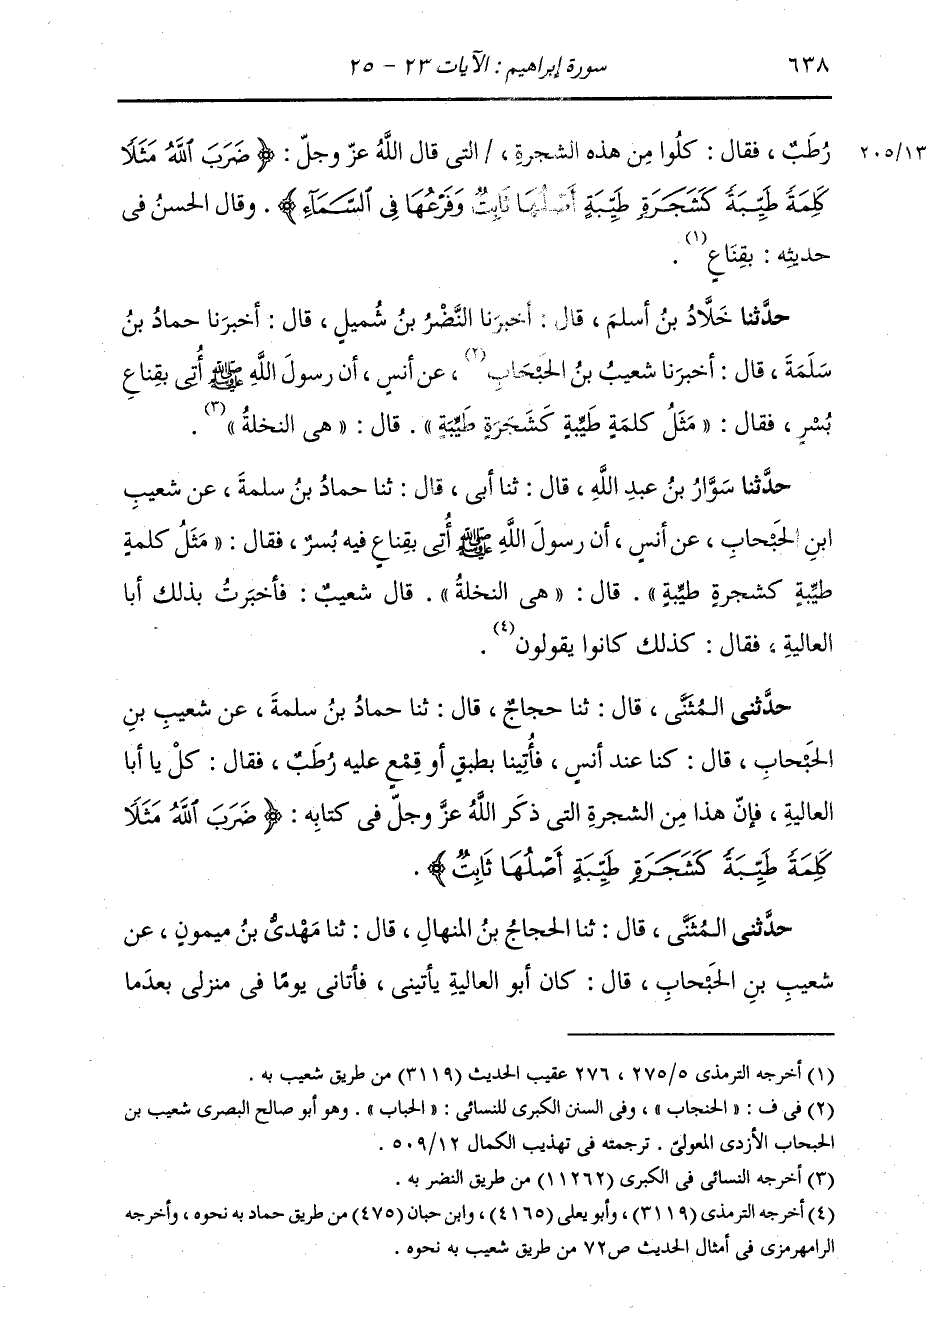 ٦٣٨ سورة إبراهيم : الآيات ٢٣ - ٢٥
٢٠٥/١٣ رُطَبٌ ، فقال : كلُوا مِن هذه الشجرةِ ، / التى قال اللَّهُ عزّ وجلّ : ﴿ ضَرَبَ ٱللَّهُ مَثَلًا
كَلِمَةً طَيِّبَةً كَشَجَرَةٍ طَيِّبَةٍ أَصْلُهَا ثَابِتٌ وَفَرْعُهَا فِى ٱلسَّمَآءِ ﴾ . وقال الحسنُ فى
حديثِه : بقِنَاعٍ (١) .
حدَّثنا خَلَّادُ بنُ أسلمَ ، قال : أخبرَنا النَّضْرُ بنُ شُميلٍ ، قال : أخبرَنا حمادُ بنُ
سَلَمَةَ ، قال : أخبرَنا شعيبُ بنُ الحَبْحَابِ (٢) ، عن أنسٍ ، أن رسولَ اللَّهِ ﷺ أُتِى بقِناعِ
بُسْرٍ ، فقال : « مَثَلُ كلمَةٍ طَيِّبةٍ كَشَجَرَةٍ طَيِّبَةٍ » . قال : « هى النخلةُ » (٣) .
حدَّثنا سَوَّارُ بنُ عبدِ اللَّهِ ، قال : ثنا أبى ، قال : ثنا حمادُ بنُ سلمةَ ، عن شعيبِ
ابنِ الحَبْحابِ ، عن أنسٍ ، أن رسولَ اللَّهِ ﷺ أُتِى بقِناعٍ فيه بُسرٌ ، فقال : « مَثَلُ كلمةٍ
طيِّبةٍ كشجرةٍ طيِّبةٍ » . قال : « هى النخلةُ » . قال شعيبٌ : فأخبَرتُ بذلك أبا
العاليةِ ، فقال : كذلك كانوا يقولون (٤) .
حدَّثنى المُثَنَّى ، قال : ثنا حجاجٌ ، قال : ثنا حمادُ بنُ سلمةَ ، عن شعيبِ بنِ
الحَبْحابِ ، قال : كنا عند أنسٍ ، فأُتِينا بطبقٍ أو قِمْعٍ عليه رُطَبٌ ، فقال : كلْ يا أبا
العاليةِ ، فإنّ هذا مِن الشجرةِ التى ذكَر اللَّهُ عزَّ وجلّ فى كتابِه : ﴿ ضَرَبَ ٱللَّهُ مَثَلًا
كَلِمَةً طَيِّبَةً كَشَجَرَةٍ طَيِّبَةٍ أَصْلُهَا ثَابِتٌ ﴾ .
حدَّثنى المُثَنَّى ، قال : ثنا الحجاجُ بنُ المنهالِ ، قال : ثنا مَهْدىُّ بنُ ميمونٍ ، عن
شعيبِ بنِ الحَبْحابِ ، قال : كان أبو العاليةِ يأتينى ، فأتانى يومًا فى منزلى بعدَما
(١) أخرجه الترمذى ٢٧٥/٥ ، ٢٧٦ عقيب الحديث (٣١١٩) من طريق شعيب به .
(٢) فى ف : « الحنجاب » ، وفى السنن الكبرى للنسائى : « الحباب » . وهو أبو صالح البصرى شعيب بن
الحبحاب الأزدى المعولىّ . ترجمته فى تهذيب الكمال ٥٠٩/١٢ .
(٣) أخرجه النسائى فى الكبرى (١١٢٦٢) من طريق النضر به .
(٤) أخرجه الترمذى (٣١١٩) ، وأبو يعلى (٤١٦٥) ، وابن حبان (٤٧٥) من طريق حماد به نحوه ، وأخرجه
الرامهرمزى فى أمثال الحديث ص٧٢ من طريق شعيب به نحوه .